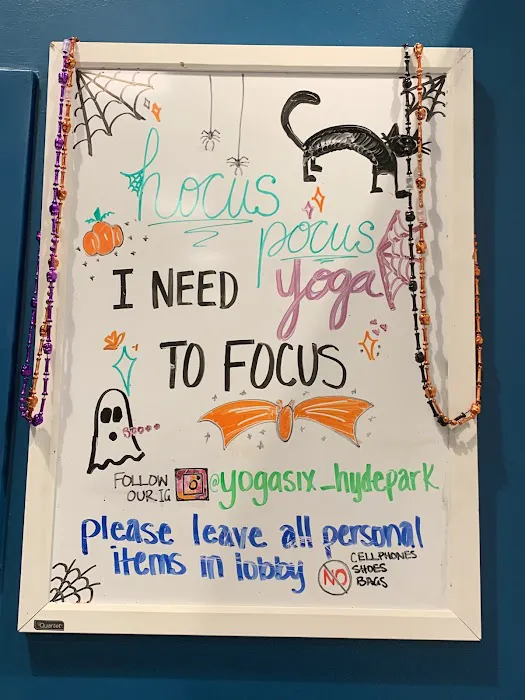 hocus
pocus
I NEED yoga
TO FOCUS
FOLLOW
OUR IG @yogasix_hydepark
please leave all personal
items in lobby NO CELLPHONES
SHOES
BAGS
Quartet